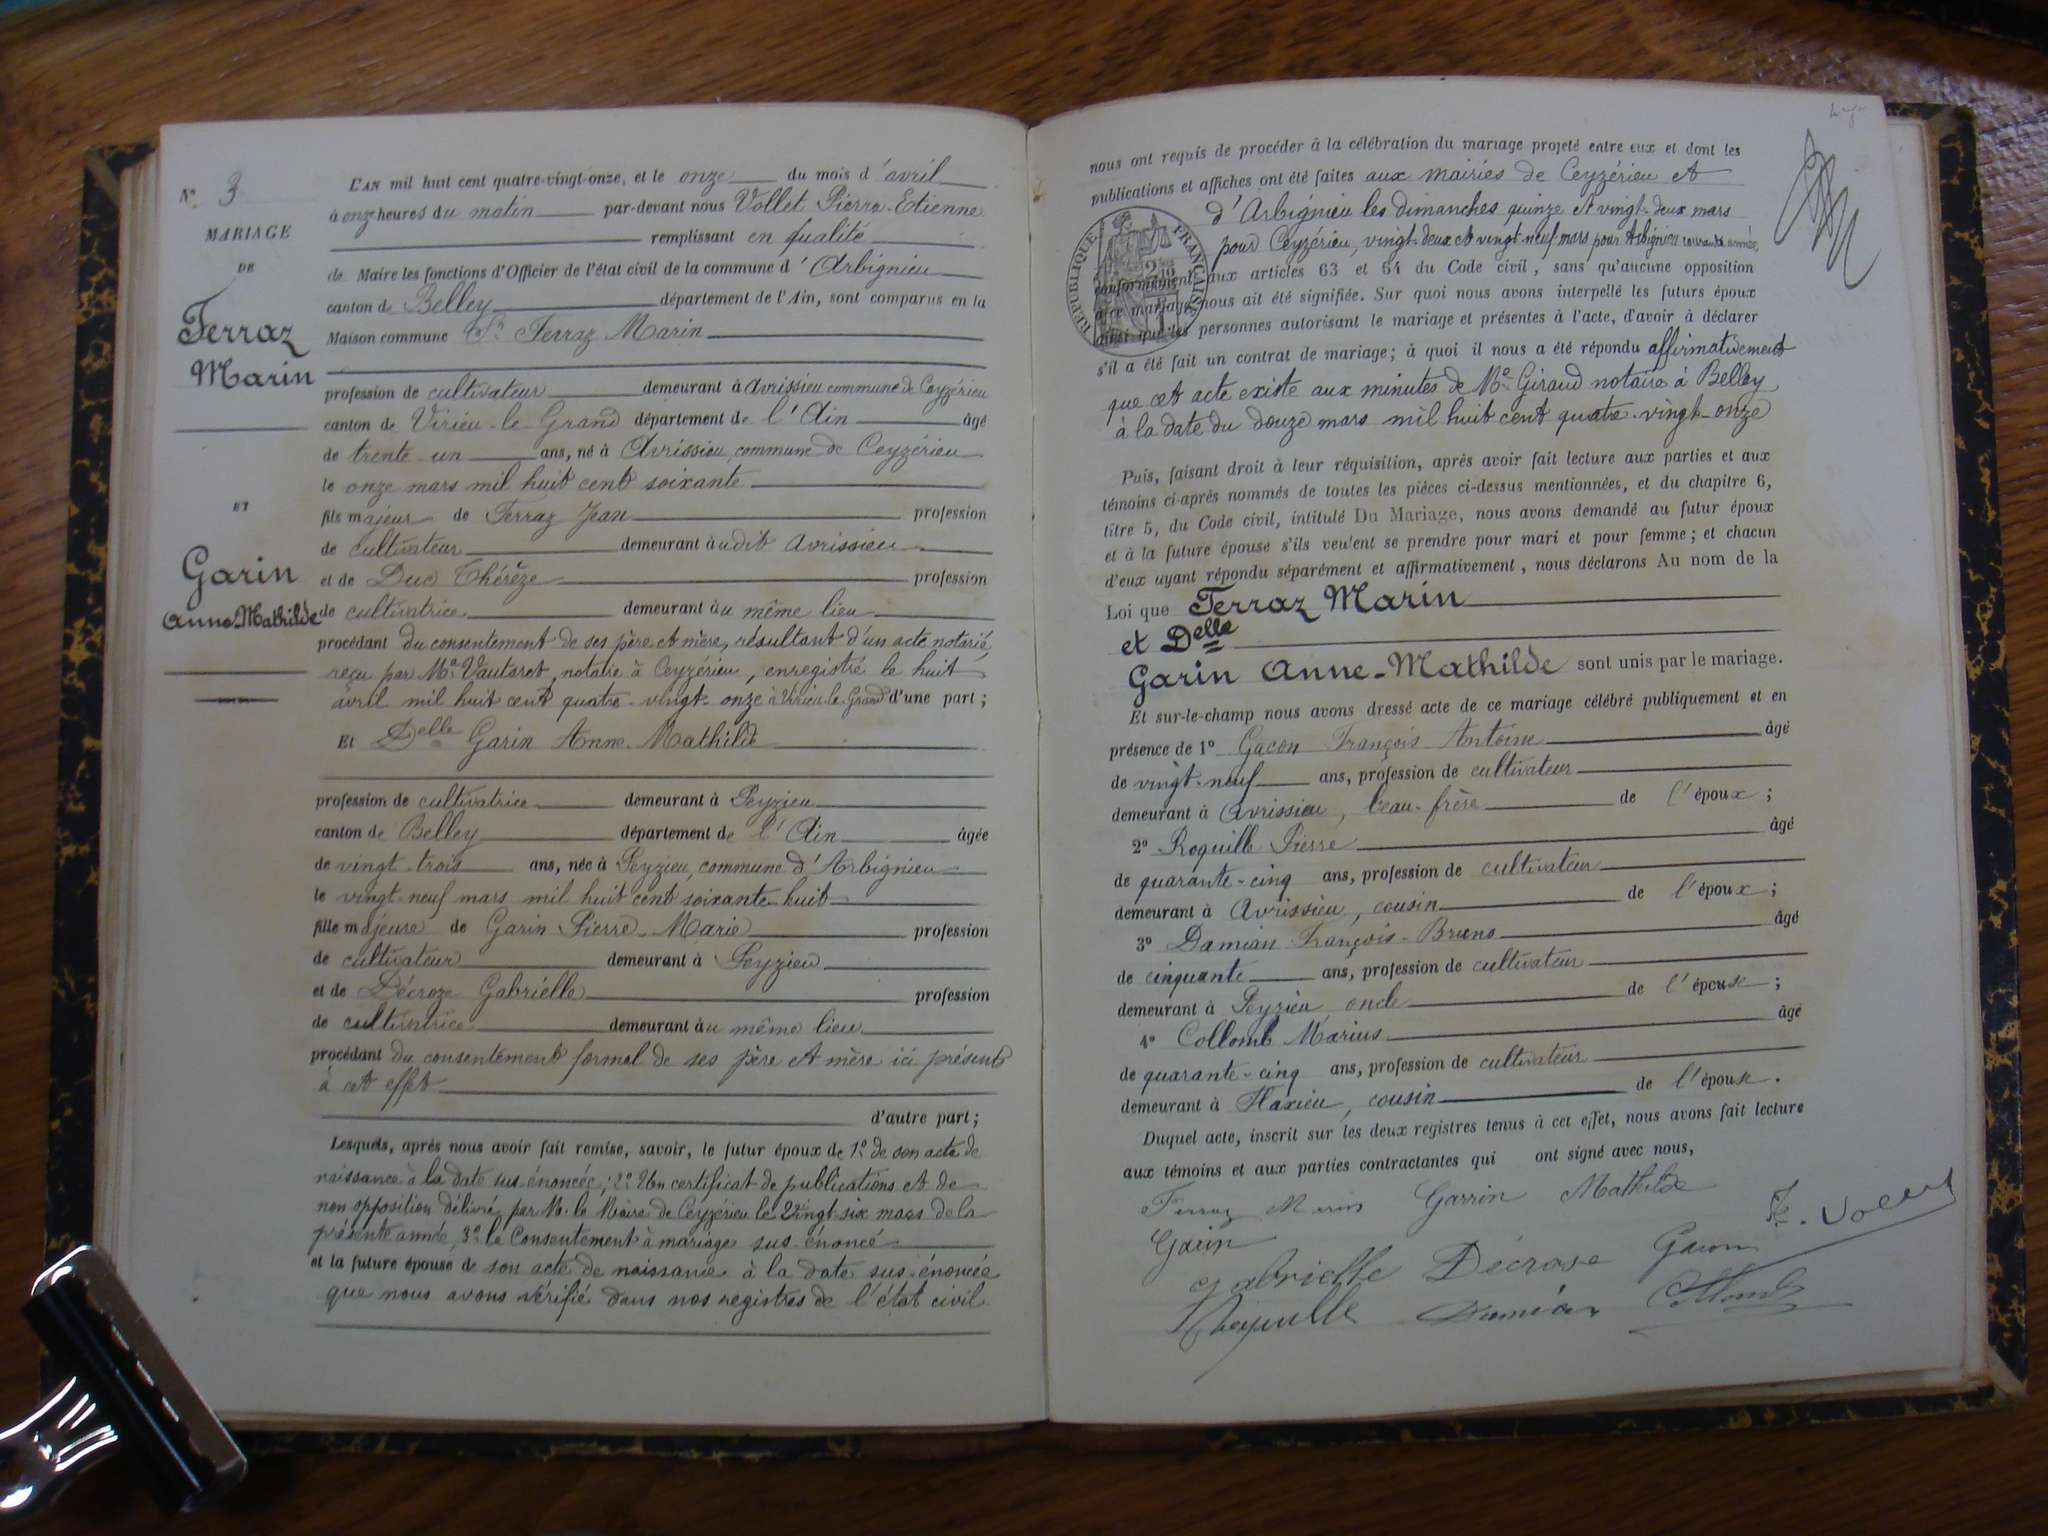 N° 3
MARIAGE
DE
Ferraz
Marin
ET
Garin
Anne-Mathilde
L'AN mil huit cent quatre-vingt-onze, et le onze du mois d'avril
à onze heures du matin par-devant nous Vollet Pierre-Etienne
remplissant en qualité
de Maire les fonctions d'Officier de l'état civil de la commune d'Arbignieu
canton de Belley département de l'Ain, sont comparus en la
Maison commune Sr Ferraz Marin
profession de cultivateur demeurant à Avrissieu commune de Ceyzérieu
canton de Virieu-le-Grand département de l'Ain âgé
de trente-un ans, né à Avrissieu, commune de Ceyzérieu
le onze mars mil huit cent soixante
fils majeur de Ferraz Jean profession
de cultivateur demeurant audit Avrissieu
et de Duc Thérèze profession
de cultivatrice demeurant au même lieu
procédant du consentement de ses père et mère, résultant d'un acte notarié,
reçu par Me Vautaret, notaire à Ceyzérieu, enregistré le huit
avril mil huit cent quatre-vingt-onze à Virieu-le-Grand d'une part ;
Et Delle Garin Anne-Mathilde
profession de cultivatrice demeurant à Peyzieu
canton de Belley département de l'Ain âgée
de vingt-trois ans, née à Peyzieu, commune d'Arbignieu
le vingt-neuf mars mil huit cent soixante-huit
fille majeure de Garin Pierre-Marie profession
de cultivateur demeurant à Peyzieu
et de Décroze Gabriélle profession
de cultivatrice demeurant au même lieu
procédant du consentement formel de ses père et mère ici présents
à cet effet
d'autre part ;
Lesquels, après nous avoir fait remise, savoir, le futur époux de 1° de son acte de
naissance à la date sus-énoncée ; 2° Un certificat de publications et de
non opposition délivré par M. le Maire de Ceyzérieu le vingt-six mars de la
présente année, 3° le Consentement à mariage sus-énoncé
et la future épouse de son acte de naissance à la date sus-énoncée
que nous avons vérifié dans nos registres de l'état civil
nous ont requis de procéder à la célébration du mariage projeté entre eux et dont les
publications et affiches ont été faites aux mairies de Ceyzérieu et
d'Arbignieu les dimanches quinze et vingt-deux mars
pour Ceyzérieu, vingt-deux et vingt-neuf mars pour Arbignieu courante année,
conformément aux articles 63 et 64 du Code civil, sans qu'aucune opposition
à ce mariage nous ait été signifiée. Sur quoi nous avons interpellé les futurs époux
ainsi que les personnes autorisant le mariage et présentes à l'acte, d'avoir à déclarer
s'il a été fait un contrat de mariage ; à quoi il nous a été répondu affirmativement
que cet acte existe aux minutes de Me Giraud notaire à Belley
à la date du douze mars mil huit cent quatre-vingt-onze
RÉPUBLIQUE FRANÇAISE
Puis, faisant droit à leur réquisition, après avoir fait lecture aux parties et aux
témoins ci-après nommés de toutes les pièces ci-dessus mentionnées, et du chapitre 6,
titre 5, du Code civil, intitulé Du Mariage, nous avons demandé au futur époux
et à la future épouse s'ils veulent se prendre pour mari et pour femme ; et chacun
d'eux ayant répondu séparément et affirmativement, nous déclarons Au nom de la
Loi que Ferraz Marin
et Delle
Garin Anne-Mathilde sont unis par le mariage.
Et sur-le-champ nous avons dressé acte de ce mariage célébré publiquement et en
présence de 1° Gacon François Antoine âgé
de vingt-neuf ans, profession de cultivateur
demeurant à Avrissieu, beau-frère de l'époux ;
2° Roquille Pierre âgé
de quarante-cinq ans, profession de cultivateur
demeurant à Avrissieu, cousin de l'époux ;
3° Damian François-Bruno âgé
de cinquante ans, profession de cultivateur
demeurant à Peyzieu oncle de l'épouse ;
4° Collomb Marius âgé
de quarante-cinq ans, profession de cultivateur
demeurant à Flaxieu, cousin de l'épouse.
Duquel acte, inscrit sur les deux registres tenus à cet effet, nous avons fait lecture
aux témoins et aux parties contractantes qui ont signé avec nous,
Ferraz Marin Garrin Mathilde
Garin
Gabrielle Décrose Gacon
Damian